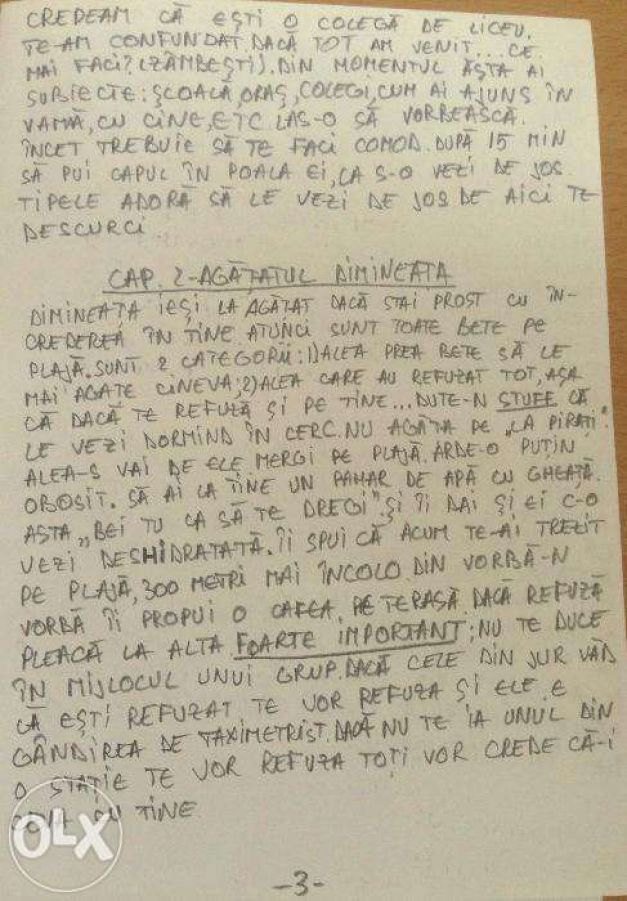 CREDEAM CĂ EȘTI O COLEGĂ DE LICEU.
TE-AM CONFUNDAT. DACĂ TOT AM VENIT... CE
MAI FACI? (ZÂMBEȘTI). DIN MOMENTUL ĂSTA AI
SUBIECTE: ȘCOALĂ, ORAȘ, COLEGI, CUM AI AJUNS ÎN
VAMĂ, CU CINE, ETC. LAS-O SĂ VORBEASCĂ.
ÎNCET TREBUIE SĂ TE FACI COMOD. DUPĂ 15 MIN
SĂ PUI CAPUL ÎN POALA EI, CA S-O VEZI DE JOS.
TIPELE ADORĂ SĂ LE VEZI DE JOS DE AICI TE
DESCURCI.
CAP. 2-AGĂȚATUL DIMINEAȚA
DIMINEAȚA IEȘI LA AGĂȚAT DACĂ STAI PROST CU ÎN-
CREDEREA ÎN TINE. ATUNCI SUNT TOATE BETE PE
PLAJĂ. SUNT 2 CATEGORII: 1) ALEA PREA BETE SĂ LE
MAI AGAȚE CINEVA, 2) ALEA CARE AU REFUZAT TOT, AȘA
CĂ DACĂ TE REFUZĂ ȘI PE TINE... DUTE-N STUFF CĂ
LE VEZI DORMIND ÎN CERC. NU AGĂȚA PE „LA PIRAȚI".
ALEA-S VAI DE ELE MERGI PE PLAJĂ. ARDE-O PUȚIN
OBOSIT. SĂ AI LA TINE UN PAHAR DE APĂ CU GHEAȚĂ.
ASTA „BEI TU CA SĂ TE DREGI" ȘI ÎI DAI ȘI EI C-O
VEZI DESHIDRATATĂ. ÎI SPUI CĂ ACUM TE-AI TREZIT
PE PLAJĂ, 300 METRI MAI ÎNCOLO. DIN VORBĂ-N
VORBĂ ÎI PROPUI O CAFEA, PE TERASĂ. DACĂ REFUZĂ
PLEACĂ LA ALTA. FOARTE IMPORTANT: NU TE DUCE
ÎN MIJLOCUL UNUI GRUP. DACĂ CELE DIN JUR VĂD
CĂ EȘTI REFUZAT TE VOR REFUZA ȘI ELE. E
GÂNDIREA DE TAXIMETRIST. DACĂ NU TE IA UNUL DIN
O STAȚIE TE VOR REFUZA TOȚI VOR CREDE CĂ-I
CEVA CU TINE
OLX
-3-